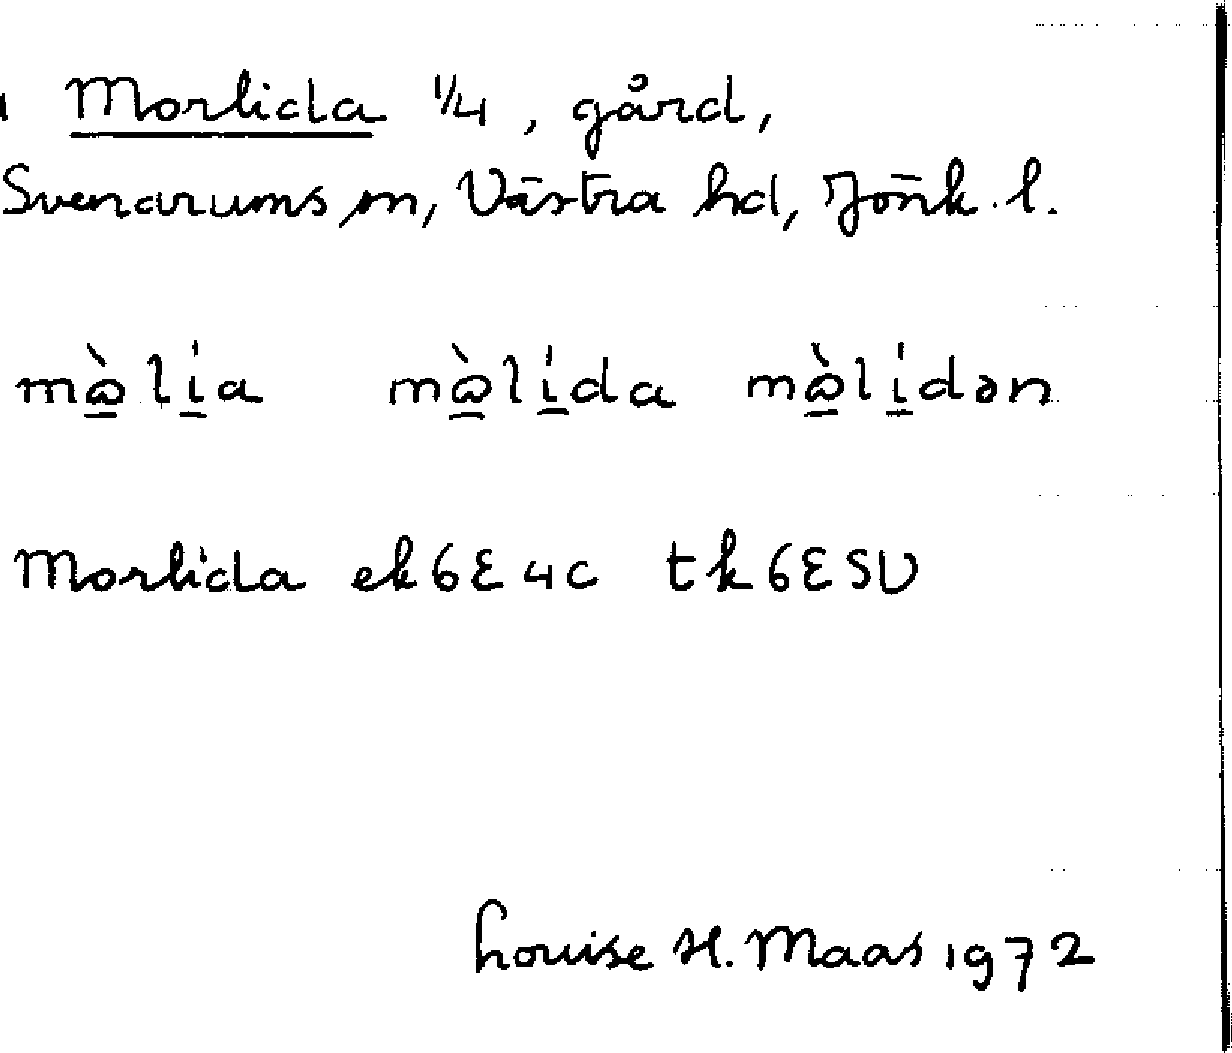 Morlida 1/4, gård,
Svenarums sn, Västra hd, Jönk. l.
mὰ̱lí̱a mὰ̱lí̱da mὰ̱lí̱dən
Morlida ek6E4c tk6ESV
Louise H. Maas 1972